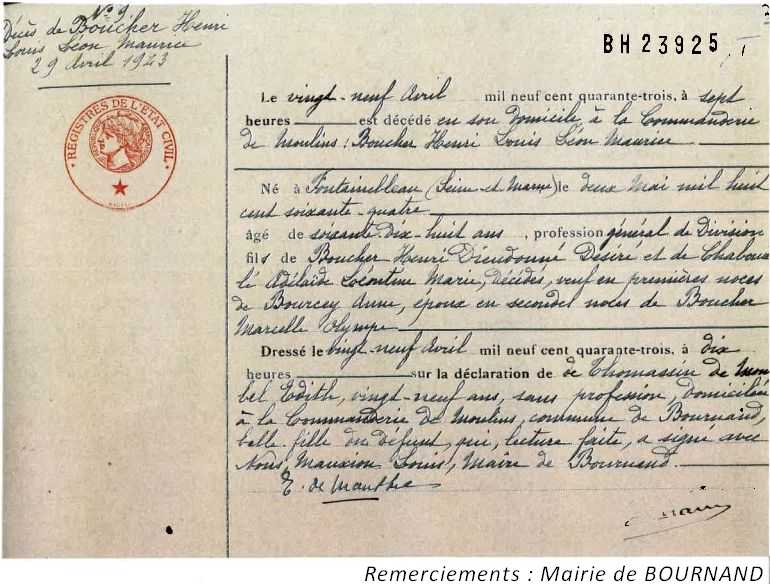 N° 9
Décès de Boucher Henri
Louis Léon Maurice
29 Avril 1943
BH23925
REGISTRES DE L'ETAT CIVIL
Le vingt-neuf Avril mil neuf cent quarante-trois, à sept
heures est décédé en son Domicile, à la Commanderie
de Moulins : Boucher Henri Louis Léon Maurice
Né à Fontainebleau (Seine-et-Marne) le deux Mai mil huit
cent soixante-quatre
âgé de soixante-dix-huit ans, profession général de Division
fils de Boucher Henri Dieudonné Désiré et de
Adélaïde Léontine Marie, décédés, veuf en premières noces
de Bourcey Anne, époux en secondes noces de Boucher
Marcelle Olympe
Dressé le vingt-neuf Avril mil neuf cent quarante-trois, à dix
heures sur la déclaration de de Thomassin de Mon
bel Edith, vingt-neuf ans, sans profession, domiciliée
à la Commanderie de Moulins, commune de Bournand,
belle-fille du défunt, qui, lecture faite, a signé avec
Nous, Mauxion Louis, Maire de Bournand.
E. de
Remerciements : Mairie de BOURNAND